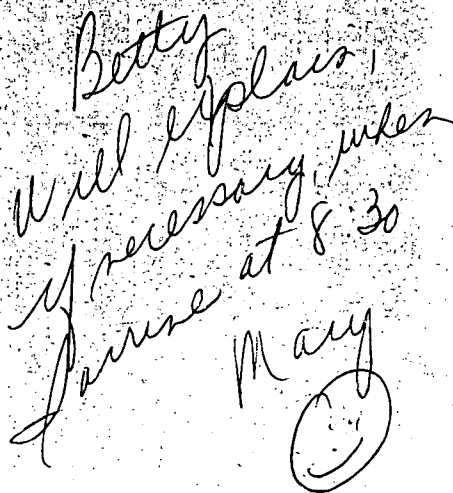 Betty
Will explain,
if necessary, when
I arrive at 8:30
Mary